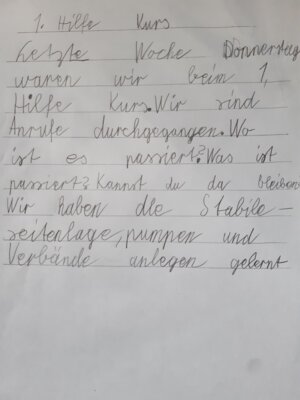 1. Hilfe Kurs
Letzte Woche Donnerstag
waren wir beim 1,
Hilfe Kurs.Wir sind
Anrufe durchgegangen.Wo
ist es passiert?Was ist
passiert?Kannst du da bleiben
Wir haben die Stabile-
seitenlage,pumpen und
Verbände anlegen gelernt